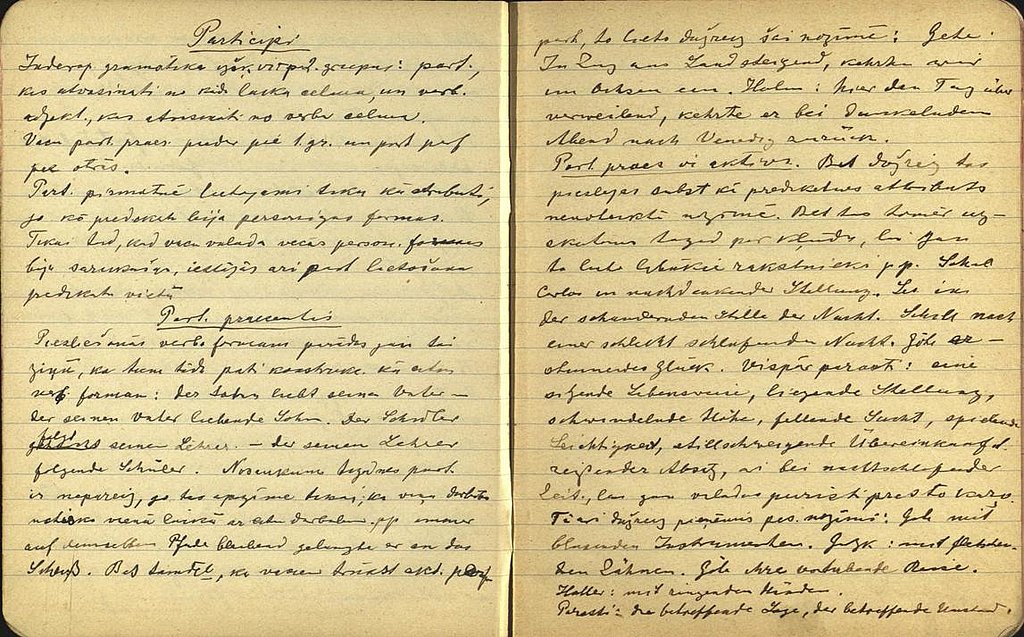 Participi
Indoeirop. gramatika divpd. grupus: part.,
kas atvasināti no kāda laika celma, un verb.
adjekt., kas atvasināti no verba celma.
Vācu part. praes. pieder pie 1. gr. un part. perf.
pie otrās.
Part. pirmatnē lietojami tikai kā atributi,
jo kā predikati bija personīgas formas.
Tikai tad, kad vācu valodā vecās person. formas
bija sarukušas, iestājās arī part. lietošana
predikata vietā
Part. praesentis
verba formām jau tai
ziņā, ka tam tāda pati konstrukc. kā citām
verb. formām: der Sohn liebt seinen Vater –
der seinen Vater liebende Sohn. Der Schüler
folgt seinem Lehrer. – der seinem Lehrer
folgende Schüler. Nosaukums part.
ir nepareizs, jo tas apzīmē tikai, ka viena darbība
notiek vienā laikā ar citu darbību, pp. immer
auf demselben Pfade bleibend gelangte er an das
Schloß. Bet tamdēļ, ka vāciem trūkst akt. perf.
part., to lieto dažreiz šai nozīmē: Gete.
In Zug ans Land steigend, kehrten wir
im Ochsen ein. Holm: hier den Tag über
verweilend, kehrte er bei dunkelndem
Abend nach Venedig zurück.
Part. praes. ir aktivs. Bet dažreiz tas
pieslejas subst. kā predikativs atributs
nenoteiktā nozīmē. Bet tas tomēr uz-
skatams tagad par kļūdu, lai gan
to lieto labākie rakstnieki pp. Schil.
Carlos in nachdenkender Stellung. Les. in
der schaudernden Stille der Nacht. Schill. nach
einer schlecht schlafenden Nacht. Göte er-
staunendes Glück. Vispār parasti: eine
sitzende Lebensweise, liegende Stellung,
schwindelnde Höhe, fallende Sucht, spielende
Leichtigkeit, stillschweigende Übereinkunft,
reißender Absatz, arī bei nachtschlafender
Zeit, lai gan valodas puristi pret to karo.
Tā arī dažreiz pas. nozīmi: Göte mit
blasenden Instrumenten. mit fletschen-
den Zähnen. Göte ihre vorhabende Reise.
Haller: mit ringenden Händen.
Parasti: die betreffende Sage, der betreffende Umstand.